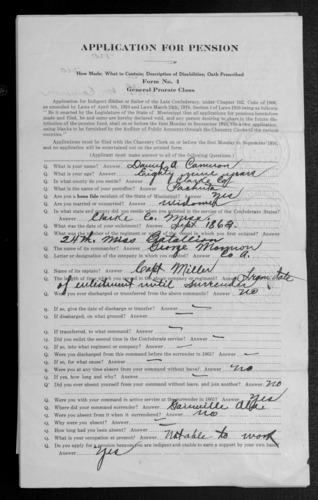 APPLICATION FOR PENSION
How Made; What to Contain; Description of Disabilities; Oath Prescribed
Form No. 4
General Prorate Class
Application for Indigent Soldier or Sailor of the Late Confederacy, under Chapter 102, Code of 1906,
as amended by Laws of April 8th, 1910 and Laws March 24th, 1916. Section 1 of Laws 1916 being as follows:
Be it enacted by the Legislature of the State of Mississippi that all applications for pensions heretofore
made and filed, be and same are hereby declared void, and any person desiring to share in the future dis-
tribution of the pension fund, shall on or before the first Monday in September
using blanks to be furnished by the Auditor of Public Accounts through the Chancery Clerks of the various
counties."
Applications must be filed with the Chancery Clerk on or before the first Monday in September
no application will be entertained out on the printed form.
(Applicant must make answer to all of the following Questions)
Q. What is your name? Answer David A Cameron
Q. What is your age? Answer Eighty years
Q. In what county do you reside? Answer Clarke Co
Q. What is the name of your postoffice? Answer Pachuta
Q. Are you a bona fide resident of the State of Mississippi? Answer Yes
Q. Are you married or unmarried? Answer widower
Q. In what state and county did you reside when you enlisted in the service of the Confederate States?
Answer Clarke Co. Miss.
Q. What was the date of your enlistment? Answer Sept
Q. What was the number of the regiment or name of the district in which you first enlisted? Answer
24th. Miss Batallion
Q. What is the name of its commander? Answer George
Q. Letter or designation of the company in which you enlisted? Answer Co A.
Q. Name of its captain? Answer Capt Miller
Q. The length of time which you served in the Answer from date
of enlistment until Surrender
Q. Were you ever discharged or transferred from the above commands? Answer no
Q. If so, give the date of discharge or transfer? Answer
Q. If discharged, on what ground? Answer
Q. If transferred, to what command? Answer
Q. Did you enlist the second time in the Confederate Service? Answer
Q. If so, into what regiment or company? Answer
Q. Were you discharged from this command before the surrender in 1865? Answer
Q. If so, for what cause? Answer
Q. Were you at any time absent from your command without leave? Answer no
Q. If yes, how long and why? Answer
Q. Did you ever absent yourself from your command without leave, and join another? Answer no
Q. Were you with your command in active service at the surrender in 1865? Answer Yes
Q. Where did your command surrender? Answer
Q. Were you absent from it when it surrendered? Answer no
Q. Why were you absent? Answer
Q. How long had you been absent? Answer
Q. What is your occupation at present? Answer Notable to work
Q. Do you apply for a pension because you are indigent and unable to earn a support by your own labor?
Answer Yes